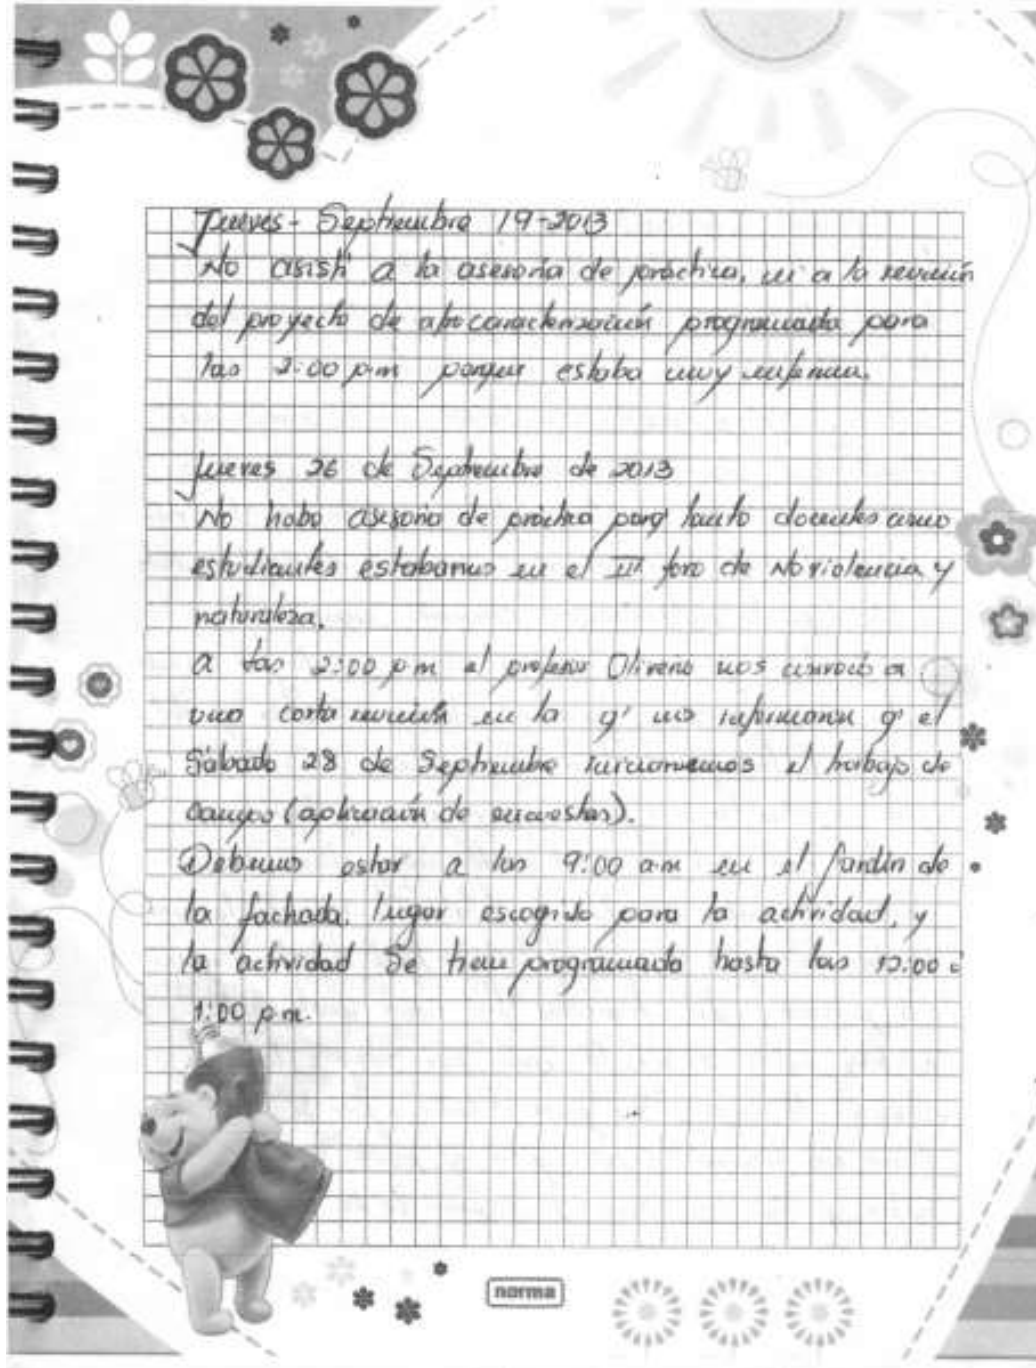 Jueves - Septiembre 19-2013
No asistí a la asesoría de práctica, ni a la reunión
del proyecto de afrocaracterización programada para
las 2:00 p.m porque estaba muy enferma.
Jueves 26 de Septiembre de 2013
No hubo asesoría de práctica porq' tanto docentes como
estudiantes estabamos en el III foro de Noviolencia y
naturaleza.
a las 2:00 p.m el profesor Olivero nos convocó a
una corta reunión en la q' nos informaron q' el
Sábado 28 de Septiembre iniciaremos el trabajo de
campo (aplicación de encuestas).
Debemos estar a las 9:00 a.m en el Jardín de
la fachada, lugar escogido para la actividad, y
la actividad se tiene programada hasta las 12:00 ó
1:00 p.m.
norma